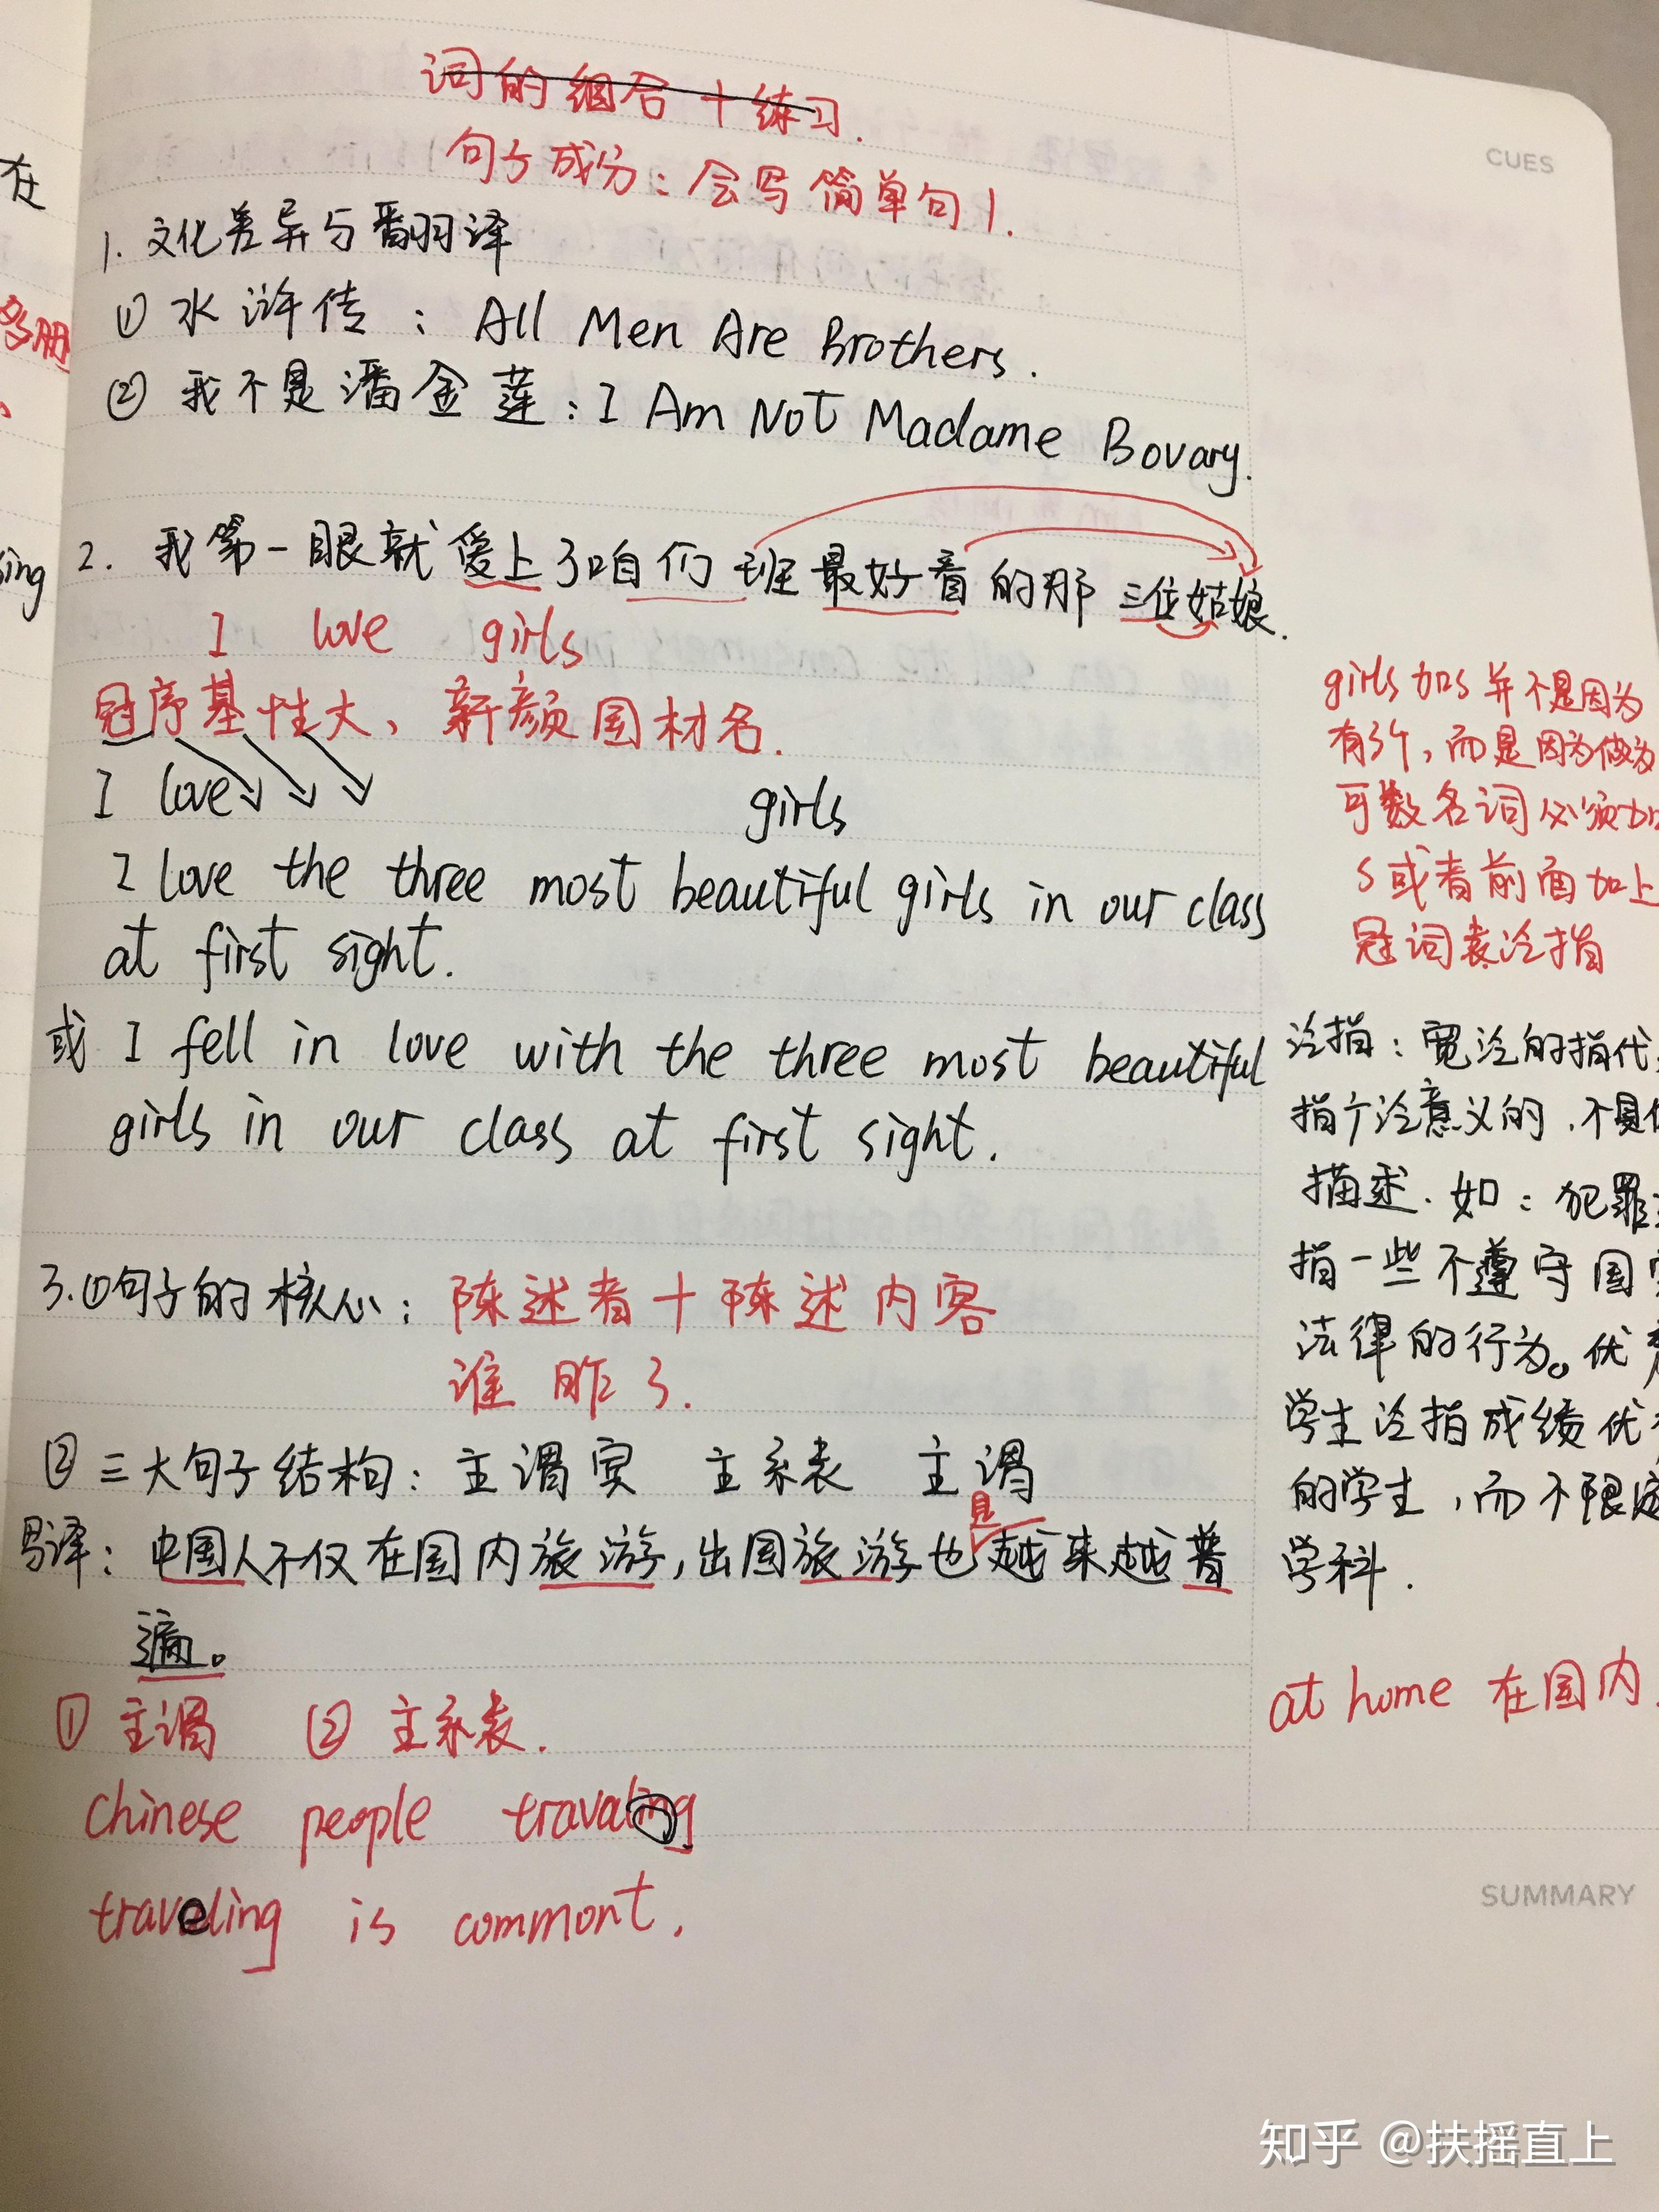 词的组合+练习.
句子成分：会写简单句1.
CUES
在
1. 文化差异与翻译
① 水浒传：All Men Are Brothers.
② 我不是潘金莲：I Am Not Madame Bovary.
2. 我第一眼就爱上了咱们班最好看的那三位姑娘.
sing
I love girls
冠序基性大、新颜国材名.
I love girls
I love the three most beautiful girls in our class
at first sight.
或 I fell in love with the three most beautiful
girls in our class at first sight.
girls加s并不是因为
有3个，而是因为做为
可数名词必须加
s或者前面加上
冠词表泛指
泛指：宽泛的指代，
指广泛意义的，不具体
描述. 如：犯罪
指一些不遵守国
法律的行为。优
学生泛指成绩优
的学生，而不限定
学科.
3.①句子的核心：陈述者+陈述内容
谁咋了.
②三大句子结构：主谓宾 主系表 主谓
是
写译：中国人不仅在国内旅游，出国旅游也越来越普
遍。
at home 在国内.
① 主谓 ② 主系表.
Chinese people travaling
traveling is commont.
SUMMARY
知乎 @扶摇直上